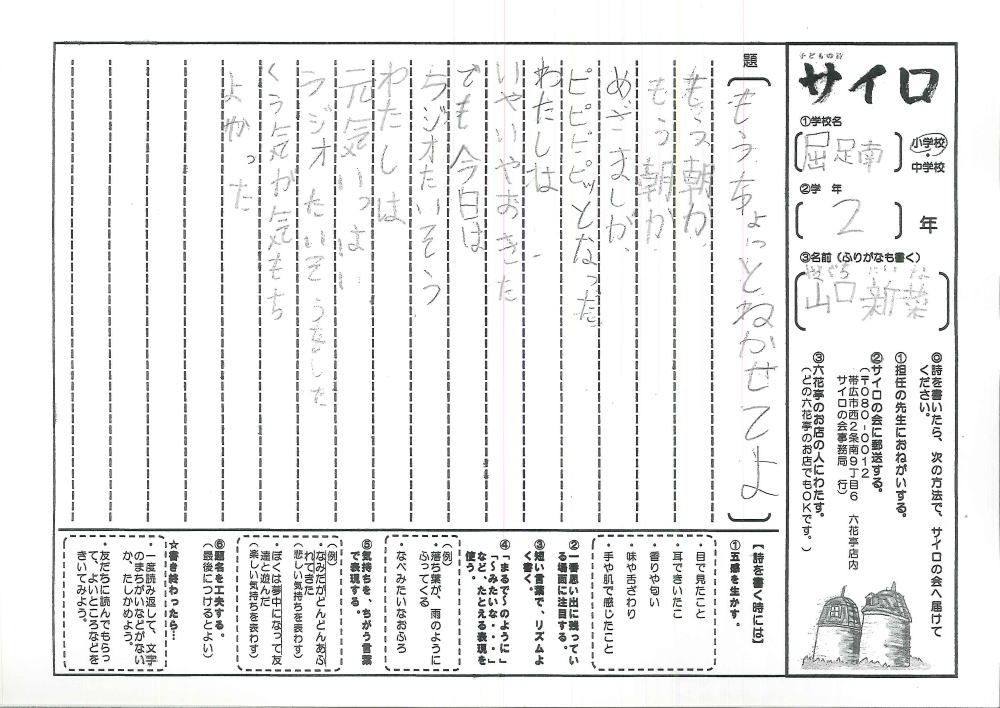 子どもの詩
サイロ
①学校名
屈足南
小学校
・
中学校
②学 年
2
年
③名前（ふりがなも書く）
やまぐち にいな
山口 新菜
◎詩を書いたら、次の方法で、サイロの会へ届けて
ください。
①担任の先生におねがいする。
②サイロの会に郵送する。
（〒080-0012
帯広市西2条南9丁目6 六花亭店内
サイロの会事務局 行）
③六花亭のお店の人にわたす。
（どの六花亭のお店でもOKです。）
題
もうちょっとねかせてよ
もう朝か
もう朝か
めざましが、
ピピピピッとなった
わたしは
いやいやおきた
でも今日は
ラジオたいそう
わたしは
元気いっぱい
ラジオたいそうをした
くう気が気もち
よかった
【詩を書く時には】
①五感を生かす。
・目で見たこと
・耳できいたこ
・香りや匂い
・味や舌ざわり
・手や肌で感じたこと
②一番思い出に残ってい
る場面に注目する。
③短い言葉で、リズムよ
く書く。
④「まるで～のように」
「～みたいな・・・」
など、たとえる表現を
使う。
（例）
・落ち葉が、雨のように
ふってくる
・なべみたいなおふろ
⑤気持ちを、ちがう言葉
で表現する。
（例）
・なみだがどんどんあふ
れてきた
（悲しい気持ちを表わす）
・ぼくは夢中になって友
達と遊んだ
（楽しい気持ちを表わす）
⑥題名を工夫する。
（最後につけるとよい）
★書き終わったら…
・一度読み返して、文字
のまちがいなどがない
か、たしかめよう。
・友だちに読んでもらっ
て、よいところなどを
きいてみよう。